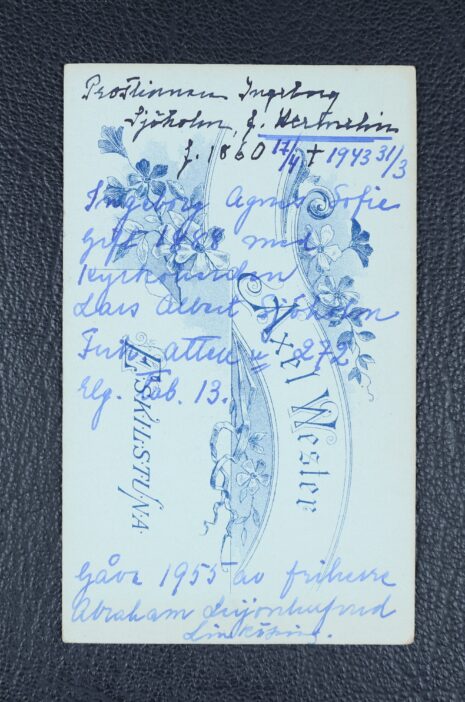 Prostinnan Ingeborg
Sjöholm, f. Hermelin
f. 1860 17/4 † 1943 31/3
Ingeborg Agnes Sofie
Gift 1888 med
kyrkoherden
Lars Albert Sjöholm
Frih. ätten n. 272
Elg. Tab. 13.
Axel Wester
ESKILSTUNA.
Gåva 1955 av friherre
Abraham Leijonhufvud
Linköping.